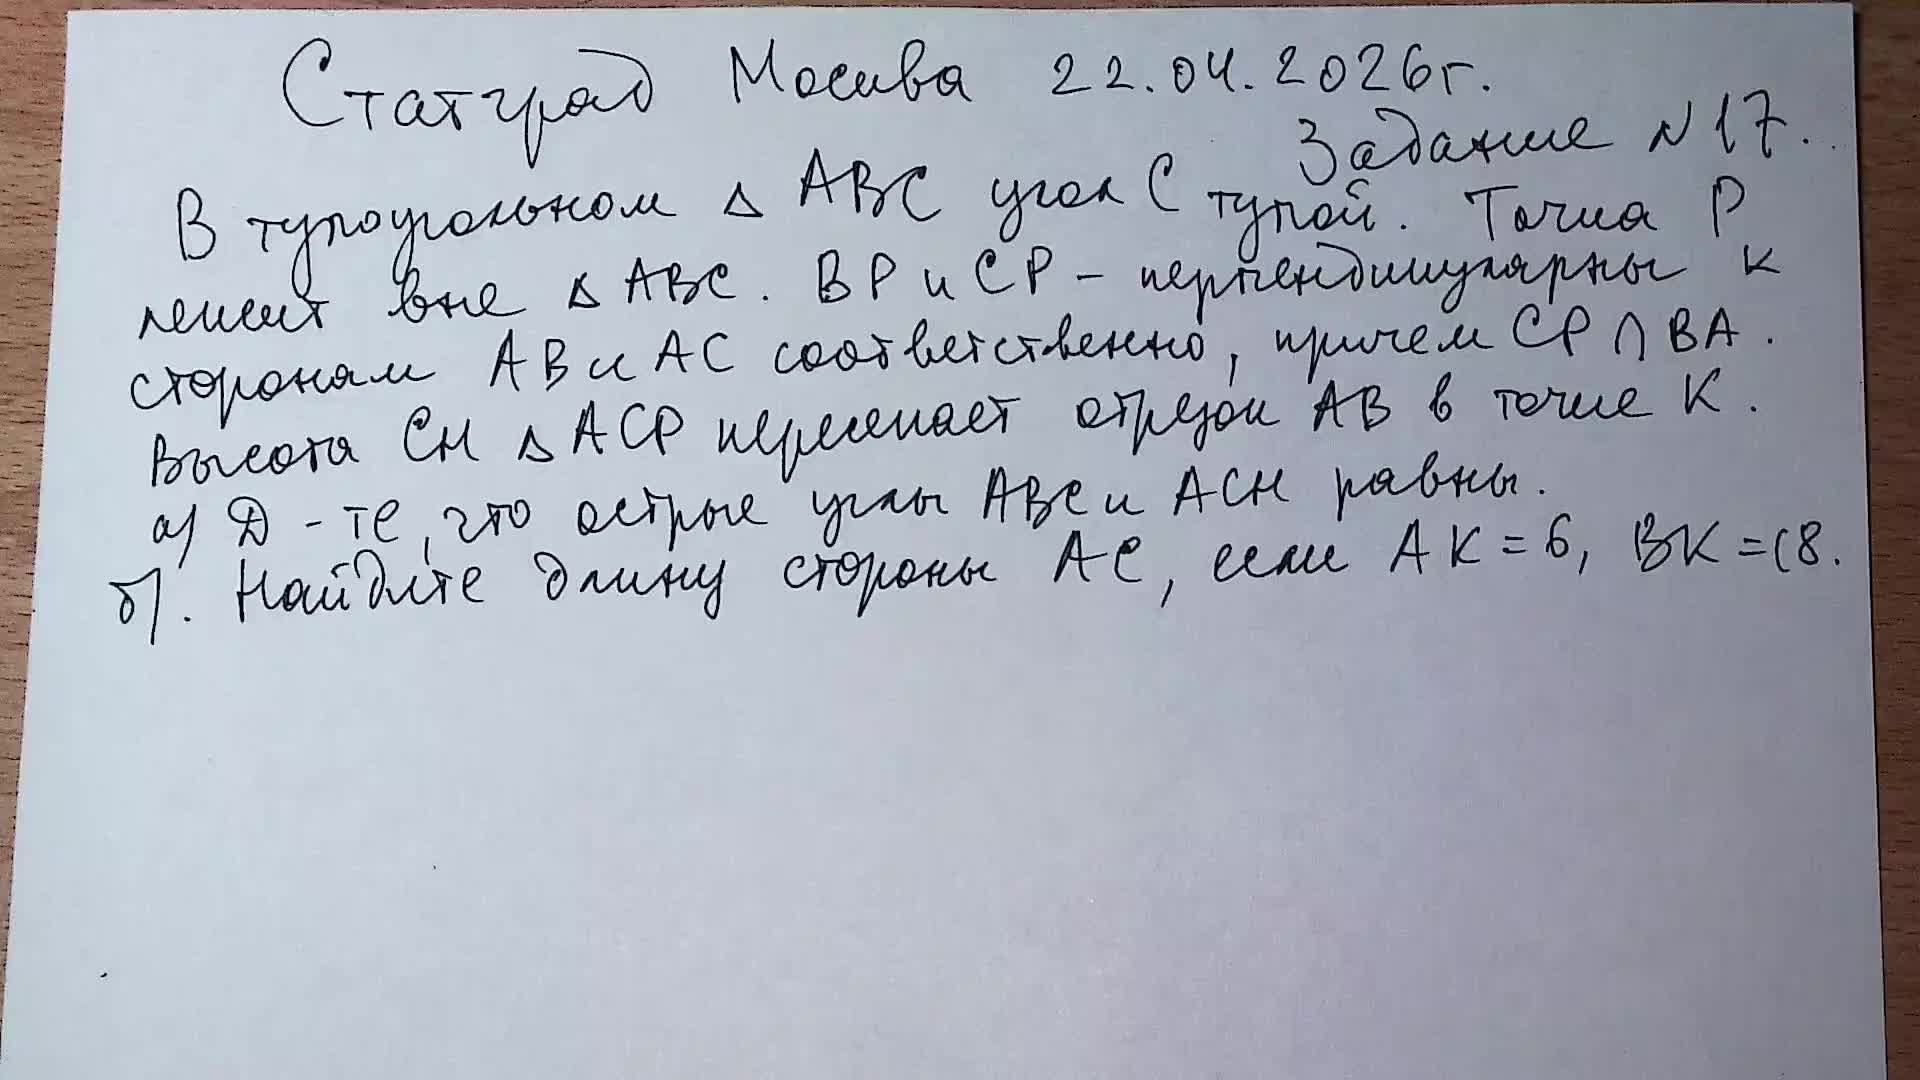 Статград Москва 22.04.2026г.
Задание №17.
В тупоугольном Δ ABC угол C тупой. Точка P
лежит вне Δ ABC. BP и CP - перпендикуляры к
сторонам AB и AC соответственно, причем CP ∩ BA.
Высота CH Δ ACP пересекает отрезок AB в точке K.
а) Д-те, что острые углы ABC и ACH равны.
б). Найдите длину стороны AC, если AK = 6, BK = 18.